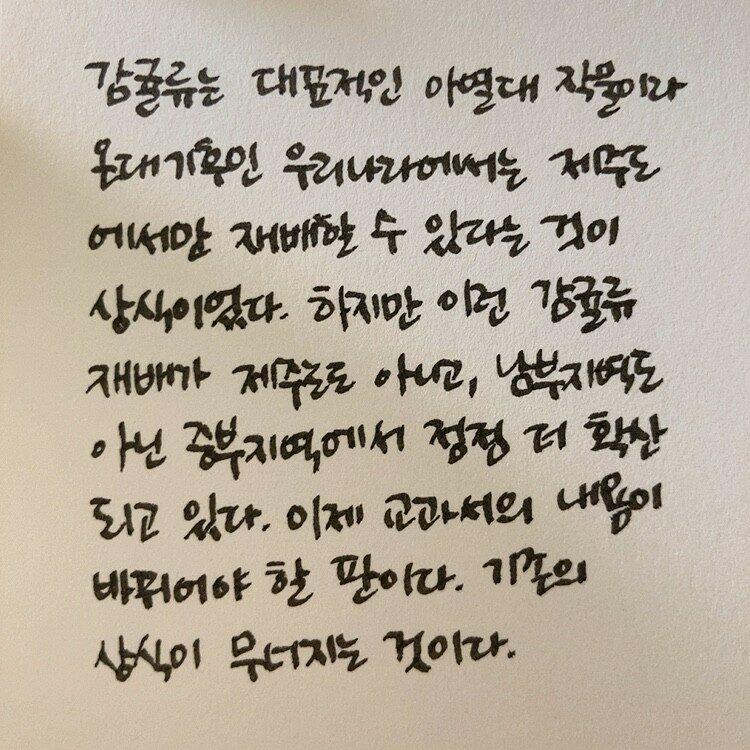 감귤류는 대표적인 아열대 작물이라
온대기후인 우리나라에서는 제주도
에서만 재배할 수 있다는 것이
상식이었다. 하지만 이런 감귤류
재배가 제주도도 아니고, 남부지역도
아닌 중부지역에서 점점 더 확산
되고 있다. 이제 교과서의 내용이
바뀌어야 할 판이다. 기존의
상식이 무너지는 것이다.